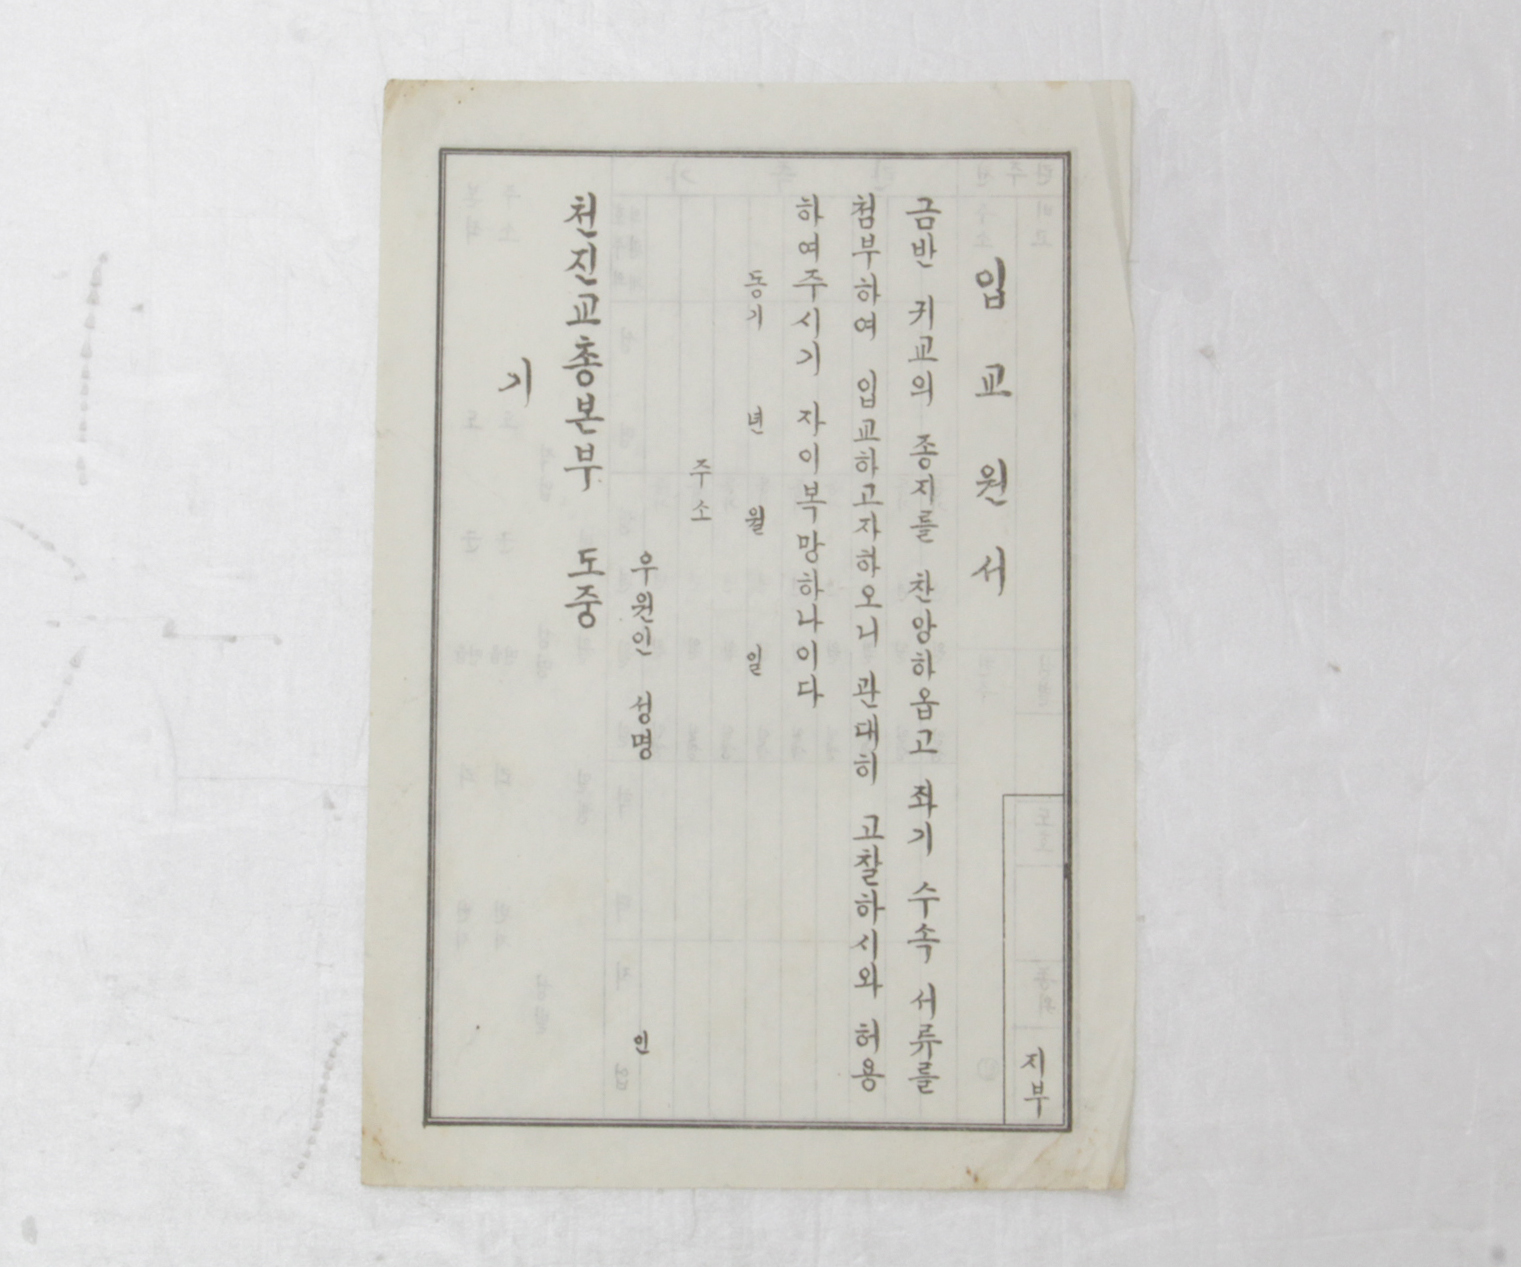 입교원서
금반 귀교의 종지를 찬앙하옵고 좌기 수속 서류를
첨부하여 입교하고자하오니 관대히 고찰하시와 허용
하여주시기 자이복망하나이다
동기 년 월 일
주소
우원인 성명 인
천진교총본부 도중
기
지부